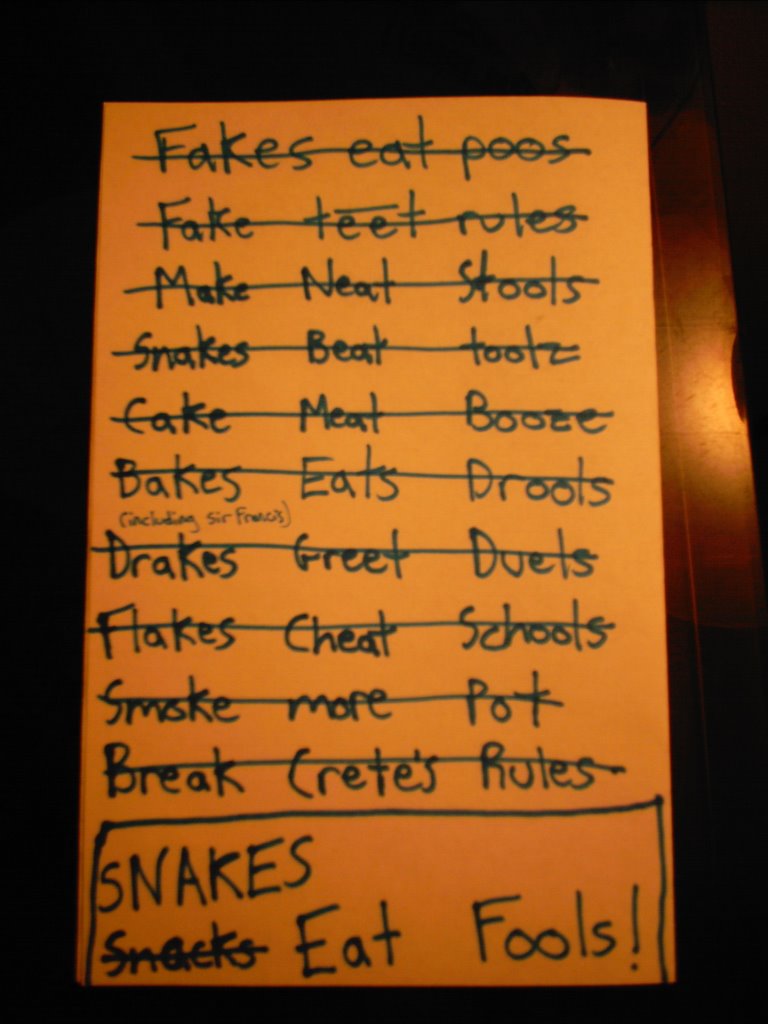 Fakes eat poos
Fake teet rules
Make Neat Stools
Snakes Beat toolz
Cake Meat Booze
Bakes Eats Drools
(including Sir Francis)
Drakes Greet Duels
Flakes Cheat Schools
Smoke more Pot
Break Crete's Rules
SNAKES
Snacks Eat Fools!